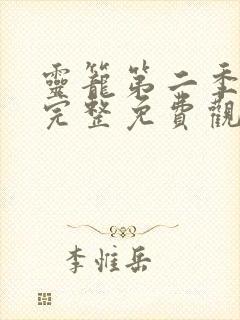 靈籠第二季
完整免費觀
李惟岳